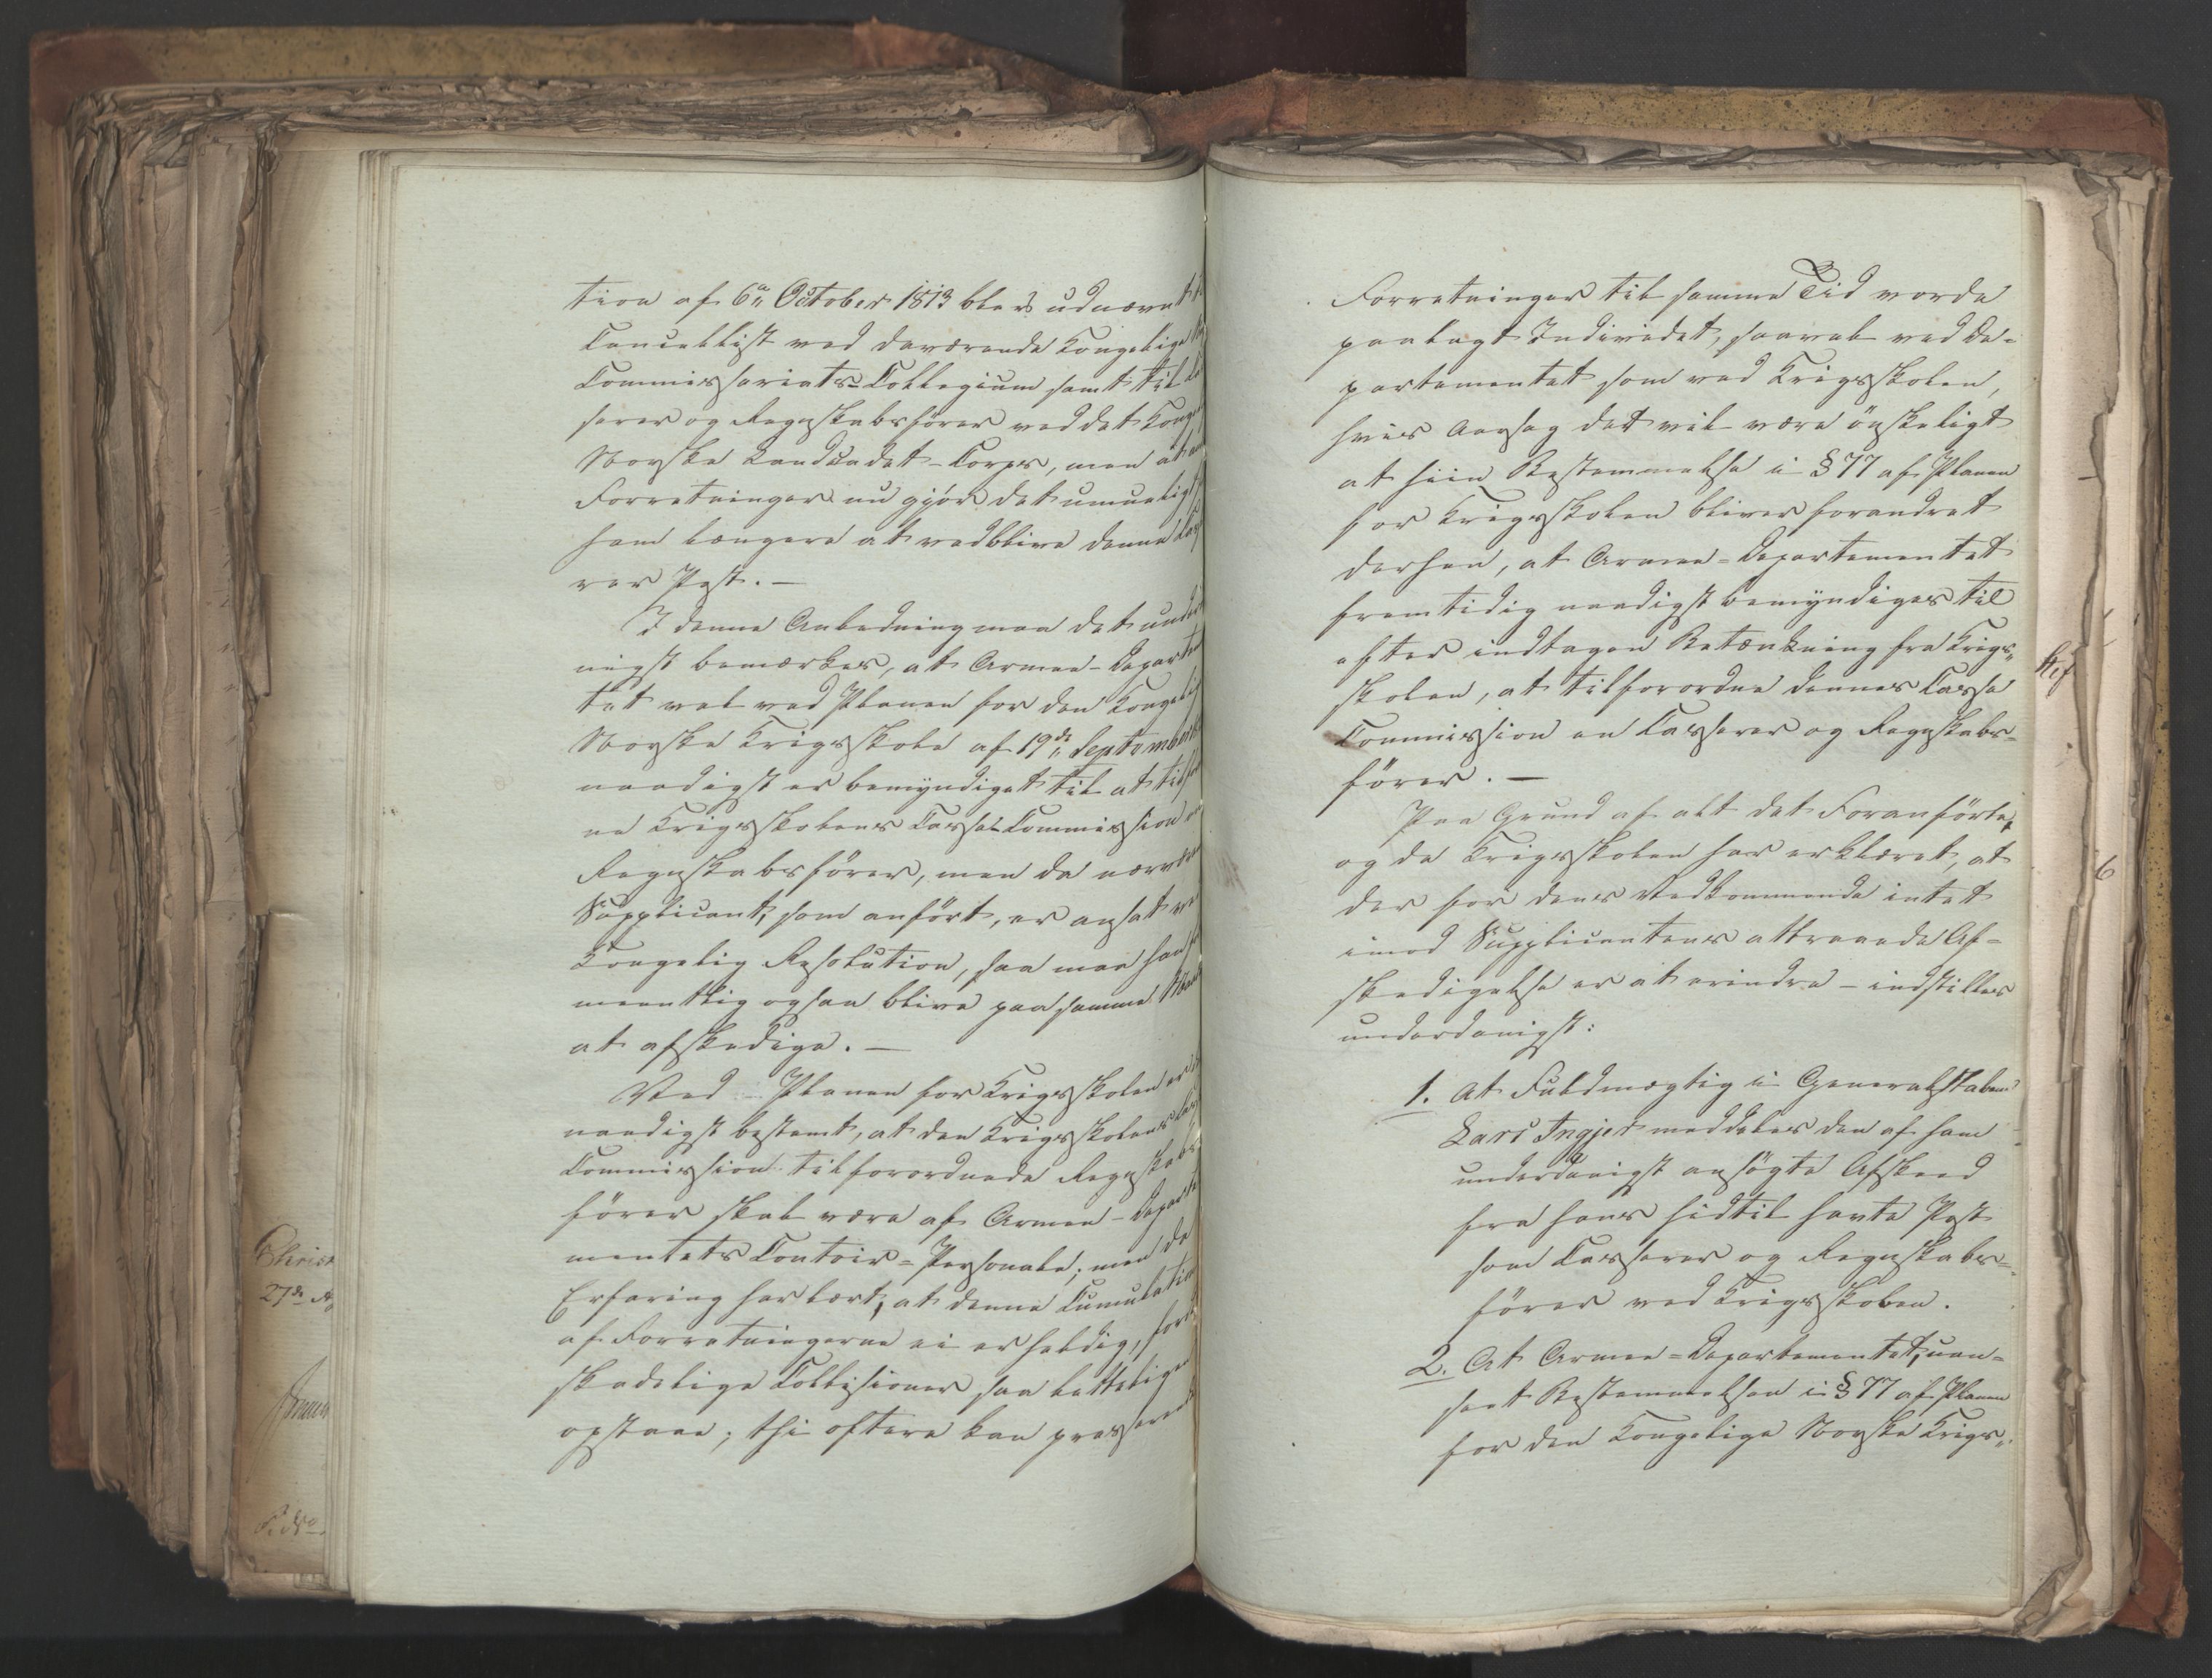 tion af 6te October 1813 blev udnævnt
Cancellist ved daværende Kongelige
Commissariats-Collegium samt til
serer og Regnskabsfører ved det Konge
Norske Landcadet-Corps, men at
Forretninger nu gjør det umueligt
ham længere at vedblive denne
rer Post. —
I denne Anledning maa det under
nigst bemærkes, at Armee-Departe
tet vel ved Planen for den Kongelig
Norske Krigsskole af 19de September
naadigst er bemyndiget til at tilfor
ne Krigsskolens Casse-Commission en
Regnskabsfører, men da nærvær
Supplicant, som anført, er ansat ved
Kongelig Resolution, saa maa han
meentlig ogsaa blive paa samme Maad
at afskedige. —
Ved Planen for Krigsskolen er
naadigst bestemt, at den Krigsskolens Cas
Commission tilforordnede Regnskabs
fører skal være af Armee-Departe
mentets Contoir-Personale; men da
Erfaring har lært, at denne Cumulation
af Forretningerne ei er heldig, fordi
skadelige Collisioner saa letteligen
opstaae; thi oftere kan presserende
Forretninger til samme Tid vorde
paalagt Individet, saavel ved De=
partementet som ved Krigsskolen,
hvis Aarsag det vil være ønskeligt
at hiin Bestemmelse i § 77 af Planen
for Krigsskolen bliver forandret
derhen, at Armee=Departementet
fremtidig naadigst bemyndiges til
efter indtagen Betænkning fra Krigs„
skolen, at tilforordne dennes Casse
Commission en Casserer og Regnskabs=
fører. —
Paa Grund af alt det Foranførte,
og da Krigsskolen har erklæret, at
der for dens Vedkommende intet
imod Supplicantens attraaede Af=
skedigelse er at erindre – indstilles
underdanigst:
1. At Fuldmægtig i Generalstaben
Lars Ingjer meddeles den af ham
underdanigst ansøgte Afskeed
fra hans hidtil havte Post
som Casserer og Regnskabs=
fører ved Krigsskolen.
2. At Armee=Departementet, uan=
seet Bestemmelsen i § 77 af Planen
for den Kongelige Norske Krigs„
27de
6